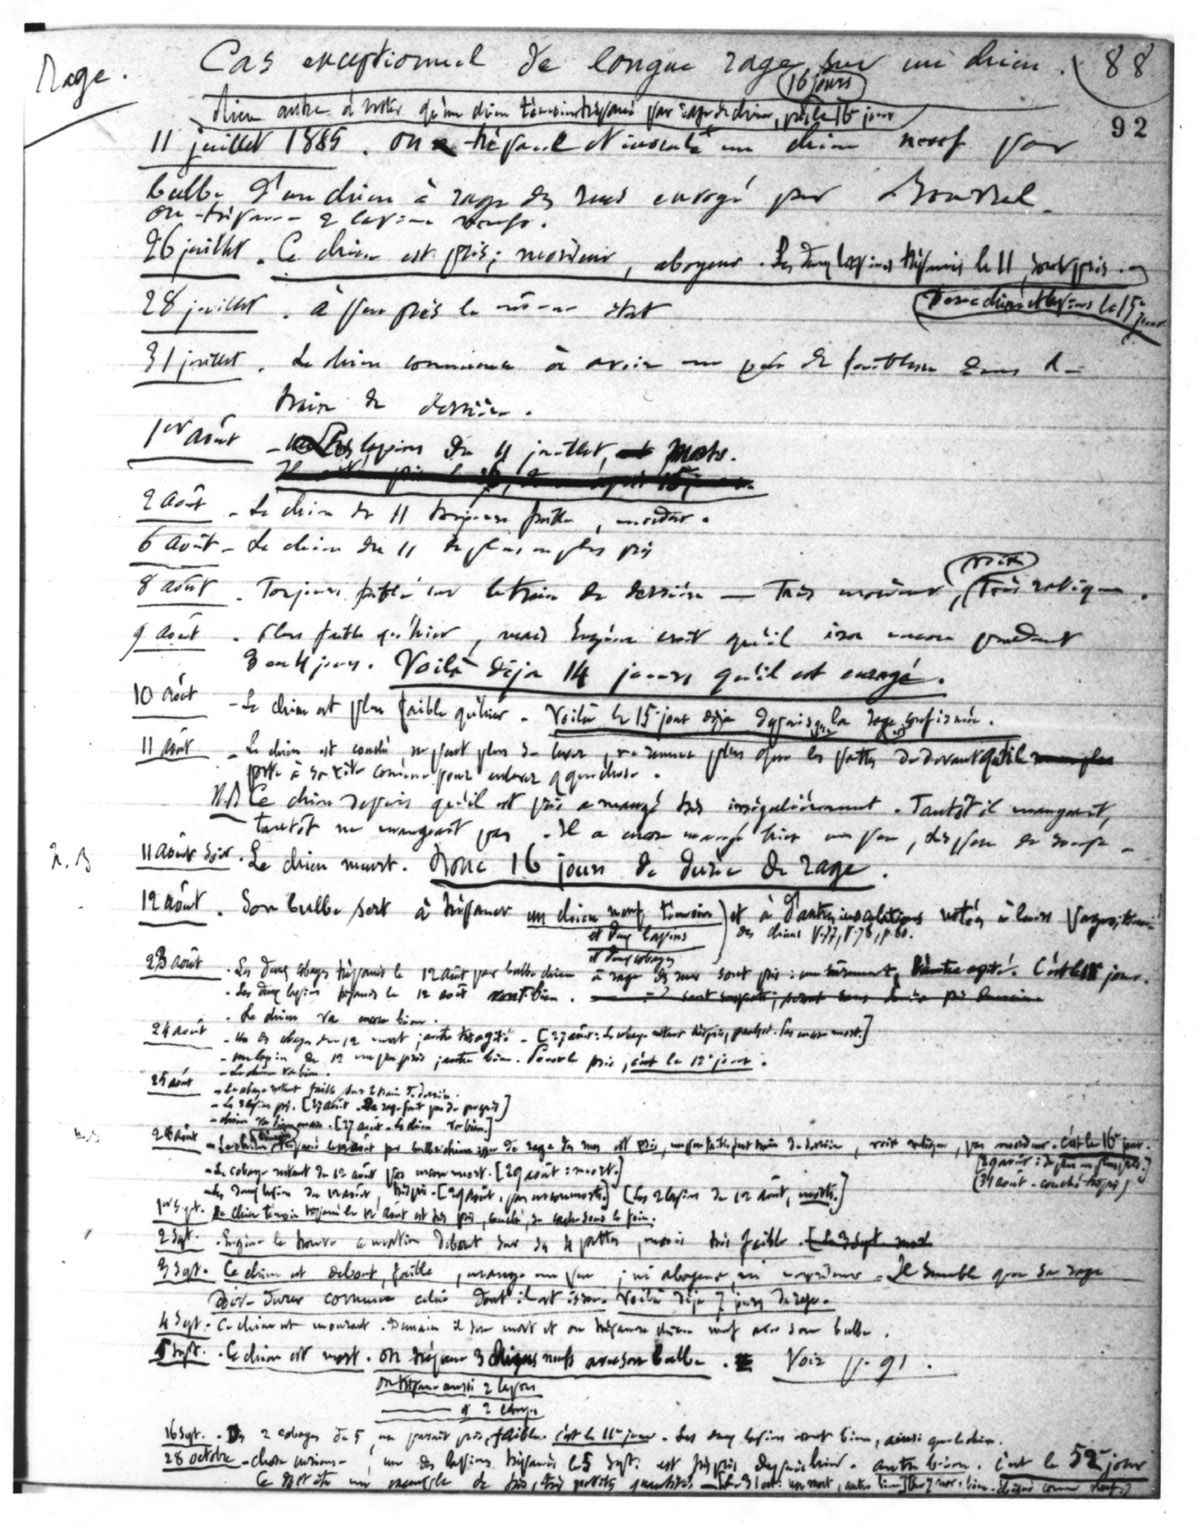 Rage.
Cas exceptionnel de longue rage sur un chien. 88
16 jours
Rien autre à noter qu'un chien témoin trépané par rage de chien, pris le 16e jour
92
11 juillet 1885. On trépane et inocule un chien neuf par
bulbe d'un chien à rage des rues envoyé par Bourrel.
On trépane 2 lapins neufs.
26 juillet. Ce chien est pris; mordeur, aboyeur. Les deux lapins trépanés le 11, sont pris.
Donc chien et lapins le 15e jour
28 juillet. à peu près le même état
31 juillet. Le chien commence à avoir un peu de faiblesse dans le
train de derrière.
1er août - Les lapins du 11 juillet, morts.
2 août - Le chien du 11 toujours faible, mordeur.
6 août - Le chien du 11 de plus en plus pris
8 août. Toujours faible sur le train de derrière — Très mordeur, voix très rabique.
9 août. Plus faible qu'hier, mais Eugène croit qu'il ira encore pendant
3 ou 4 jours. Voilà déjà 14 jours qu'il est enragé.
10 août - Le chien est plus faible qu'hier - Voilà le 15e jour déjà depuis que la rage confirmée.
11 août - Le chien est couché ne peut plus se lever, ne remue plus que les pattes de devant qu'il
porte à sa tête comme pour enlever quelque chose.
NB Ce chien depuis qu'il est pris a mangé très irrégulièrement. Tantôt il mangeait,
tantôt ne mangeait pas. Il a encore mangé hier un peu, un peu de soupe.
N.B
11 août soir. Le chien meurt. Donc 16 jours de durée de rage.
12 août. Son bulbe sert à trépaner un chien neuf, témoin et à d'autres inoculations notées à leurs
et deux lapins des chiens p.77, p.78, p.80.
et deux cobayes
23 août. Les deux cobayes trépanés le 12 août par bulbe chien à rage des rues sont pris: un sûrement, l'autre agité. C'est le 11e jour.
- Les deux lapins trépanés le 12 août vont bien.
- Le chien va encore bien.
24 août - Un des cobayes du 12 mort, autre très agité - [27 août:
- un lapin du 12 un peu pris, autre bien. c'est le 12e jour.
- Le chien va bien.
25 août - Le cobaye restant faible sur train de derrière.
- Le 2e lapin pris. [27 août
- chien va bien encore. [27 août - le chien va bien.]
28 août - Le chien témoin trépané le 12 août par bulbe chien de rage des rues est pris, un peu faible train de derrière, voix rabique, pas mordeur. c'est le 16e jour.
[29 août: de plus en plus pris.]
[31 août - couché très pris]
- Le cobaye restant du 12 août pas encore mort. [29 août: mort.]
- Les deux lapins du 12 août, très pris. [29 août, pas encore morts.] [Les 2 lapins du 12 août, morts.]
1er Sept. Le chien témoin trépané le 12 août est très pris, couché, se cache sous le foin.
2 Sept. - Eugène le trouve ce matin debout sur ses 4 pattes, mais très faible.
3 Sept. Ce chien est debout, faible, mange un peu; ni aboyeur, ni mordeur. Il semble que sa rage
doive durer comme celui dont il est issu. Voilà déjà 7 jours de rage.
4 Sept. Ce chien est mourant. Demain il sera mort et on trépanera chien neuf avec son bulbe.
5 Sept. Ce chien est mort. On trépane 3 chiens neufs avec son bulbe. Voir p. 91.
on trépane aussi 2 lapins
et 2 cobayes
16 Sept. - Des 2 cobayes du 5, un paraît pris, faible. c'est le 11e jour. Les deux lapins vont bien, ainsi que le chien.
28 octobre - chose curieuse, un des lapins trépanés le 5 Sept. est pris depuis hier. autre bien. c'est le 52e jour